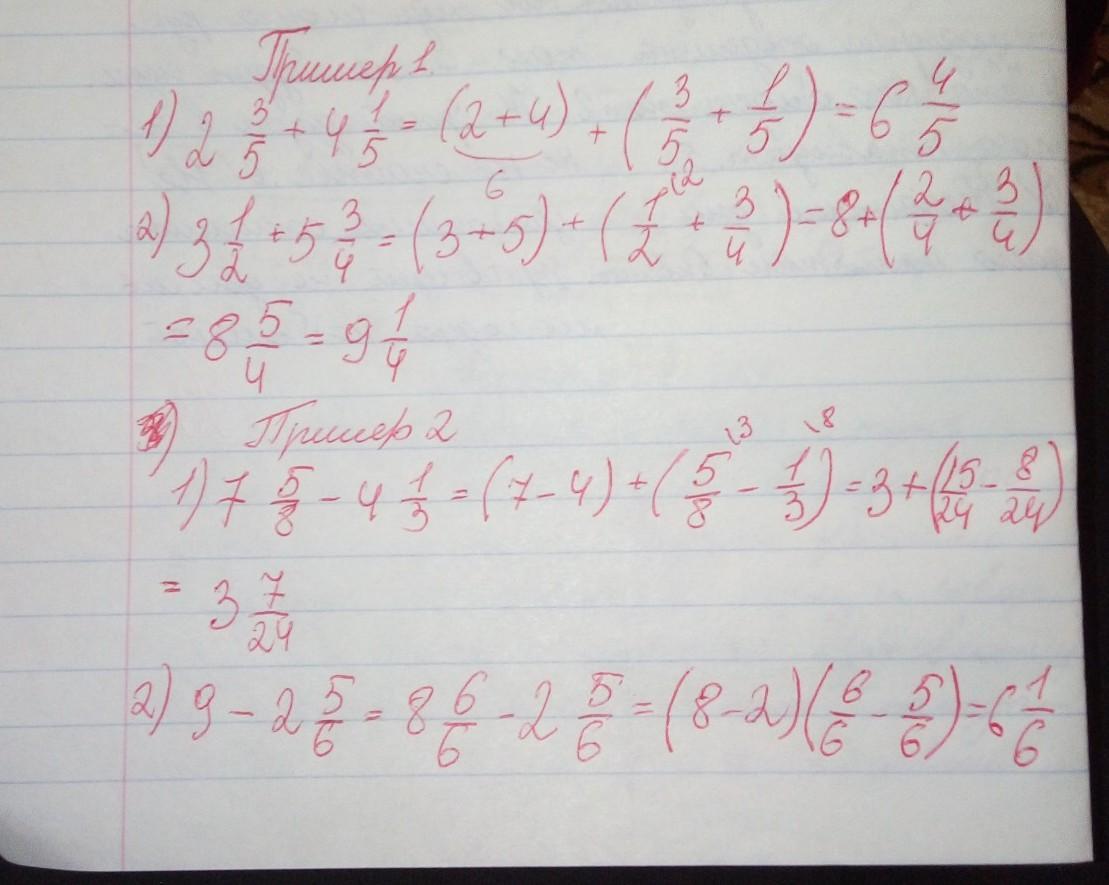 Пример 1.
1) 2 3/5 + 4 1/5 = (2 + 4) + (3/5 + 1/5) = 6 4/5
6
2) 3 1/2 + 5 3/4 = (3 + 5) + (1\2/2 + 3/4) = 8 + (2/4 + 3/4)
= 8 5/4 = 9 1/4
Пример 2
1) 7 5/8 - 4 1/3 = (7 - 4) + (5\3/8 - 1\8/3) = 3 + (15/24 - 8/24)
= 3 7/24
2) 9 - 2 5/6 = 8 6/6 - 2 5/6 = (8 - 2)(6/6 - 5/6) = 6 1/6